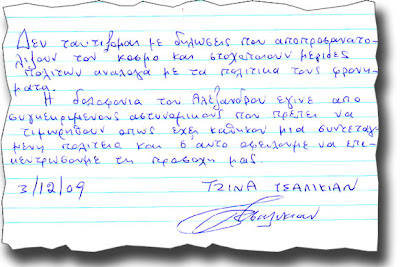 Δεν ταυτίζομαι με δηλώσεις που αποπροσανατο-
λίζουν τον κοσμο και στοχοποιουν μεριδες
πολιτων αναλογα με τα πολιτικα τους φρονη-
ματα.
Η δολοφονια του Αλεξανδρου εγινε απο
συγκεκριμενους αστυνομικους που πρεπει να
τιμωρηθουν οπως εχει καθηκον μια συντεταγ-
μενη πολιτεια και σ αυτο οφειλουμε να επι-
κεντρωσουμε τη προσοχη μας.
3/12/09 ΤΖΙΝΑ ΤΣΑΛΙΚΙΑΝ
Τσαλικιαν